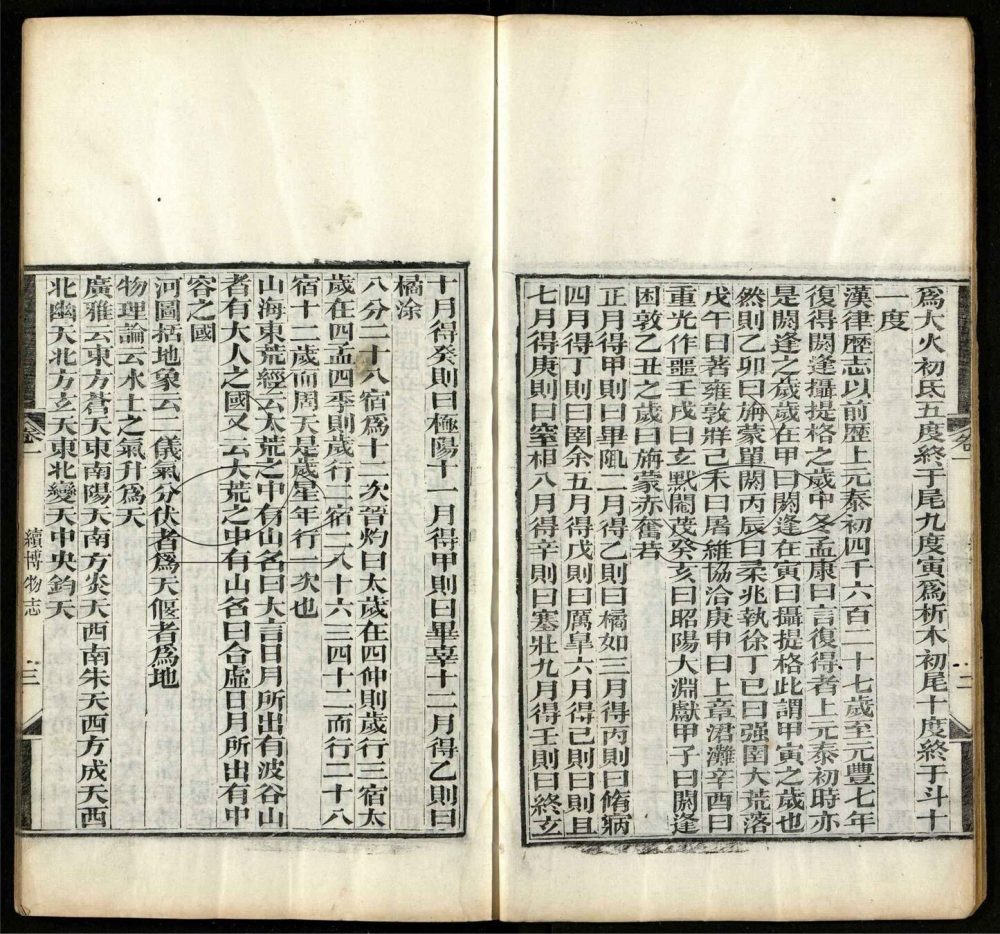 爲大火初氐五度終于尾九度寅爲析木初尾十度終于斗十
一度
漢律歴志以前歴上元泰初四千六百二十七歲至元豐七年
復得閼逢攝提格之歲中冬孟康曰言復得者上元泰初時亦
是閼逢之歲歲在甲曰閼逢在寅曰攝提格此謂甲寅之歲也
然則乙卯曰旃蒙單閼丙辰曰柔兆執徐丁巳曰强圉大荒落
戊午曰著雍敦牂己未曰屠維協洽庚申曰上章涒灘辛酉曰
重光作噩壬戌曰玄默閹茂癸亥曰昭陽大淵獻甲子曰閼逢
困敦乙丑之歲曰旃蒙赤奮若
正月得甲則曰畢陬二月得乙則曰橘如三月得丙則曰脩寎
四月得丁則曰圉余五月得戊則曰厲皐六月得己則曰則且
七月得庚則曰窒相八月得辛則曰塞壯九月得壬則曰終玄
二
十月得癸則曰極陽十一月得甲則曰畢辜十二月得乙則曰
橘涂
八分二十八宿爲十二次晉灼曰太歲在四仲則歲行三宿太
歲在四孟四季則歲行二宿二八十六三四十二而行二十八
宿十二歲而周天是歲星年行一次也
山海東荒經云大荒之中有山名曰大言日月所出有波谷山
者有大人之國又云大荒之中有山名曰合虛日月所出有中
容之國
河圖括地象云二儀氣分伏者爲天偃者爲地
物理論云水土之氣升爲天
廣雅云東方蒼天東南陽天南方炎天西南朱天西方成天西
北幽天北方玄天東北變天中央鈞天
卷一 續博物志 三